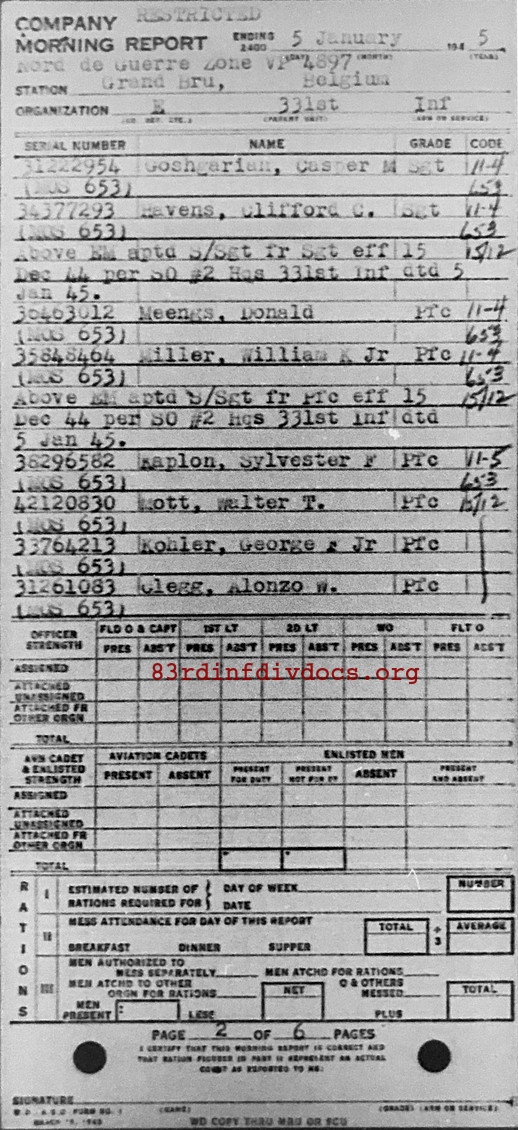 RESTRICTED
COMPANY
MORNING REPORT ENDING 2400 5 January 194 5
Nord de Guerre Zone VP 4897
STATION Grand Bru, Belgium
ORGANIZATION E 331st Inf
(CO. DET. ETC.) (PARENT UNIT) (ARM OR SERVICE)
SERIAL NUMBER NAME GRADE CODE
31222954 Goshgarian, Casper M Sgt 11-4
(MOS 653) 653
34377293 Havens, Clifford C. Sgt 11-4
(MOS 653) 653
Above EM aptd S/Sgt fr Sgt eff 15 15/12
Dec 44 per SO #2 Hqs 331st Inf dtd 5
Jan 45.
36463012 Meengs, Donald Pfc 11-4
(MOS 653) 653
35848464 Miller, William K Jr Pfc 11-4
(MOS 653) 653
Above EM aptd S/Sgt fr Pfc eff 15 15/12
Dec 44 per SO #2 Hqs 331st Inf dtd
5 Jan 45.
38296582 Kaplon, Sylvester F Pfc 11-5
(MOS 653) 653
42120830 Mott, Walter T. Pfc 15/12
(MOS 653)
33764213 Kohler, George F Jr Pfc
(MOS 653)
31261083 Clegg, Alonzo W. Pfc
(MOS 653)
OFFICER STRENGTH FLD O & CAPT 1ST LT 2D LT WO FLT O
PRES ABS'T PRES ABS'T PRES ABS'T PRES ABS'T PRES ABS'T
ASSIGNED
83rdinfdivdocs.org
ATTACHED UNASSIGNED
ATTACHED FR OTHER ORGN
TOTAL
AVN CADET & ENLISTED STRENGTH AVIATION CADETS ENLISTED MEN
PRESENT ABSENT PRESENT FOR DUTY PRESENT NOT FOR DY ABSENT PRESENT AND ABSENT
ASSIGNED
ATTACHED UNASSIGNED
ATTACHED FR OTHER ORGN
TOTAL
RATIONS
I ESTIMATED NUMBER OF RATIONS REQUIRED FOR DAY OF WEEK DATE NUMBER
II MESS ATTENDANCE FOR DAY OF THIS REPORT TOTAL ÷ 3 AVERAGE
BREAKFAST DINNER SUPPER
III MEN AUTHORIZED TO MESS SEPARATELY MEN ATCHD FOR RATIONS
MEN ATCHD TO OTHER ORGN FOR RATIONS NET O & OTHERS MESSED TOTAL
MEN PRESENT LESS PLUS
PAGE 2 OF 6 PAGES
I CERTIFY THAT THIS MORNING REPORT IS CORRECT AND
THAT RATION FIGURES IN PART III REPRESENT AN ACTUAL
COUNT AS REPORTED TO ME.
SIGNATURE
(NAME) (GRADE) (ARM OR SERVICE)
W.D., A.G.O. FORM NO. 1
MARCH 15, 1943
WD COPY THRU MRU OR SCU